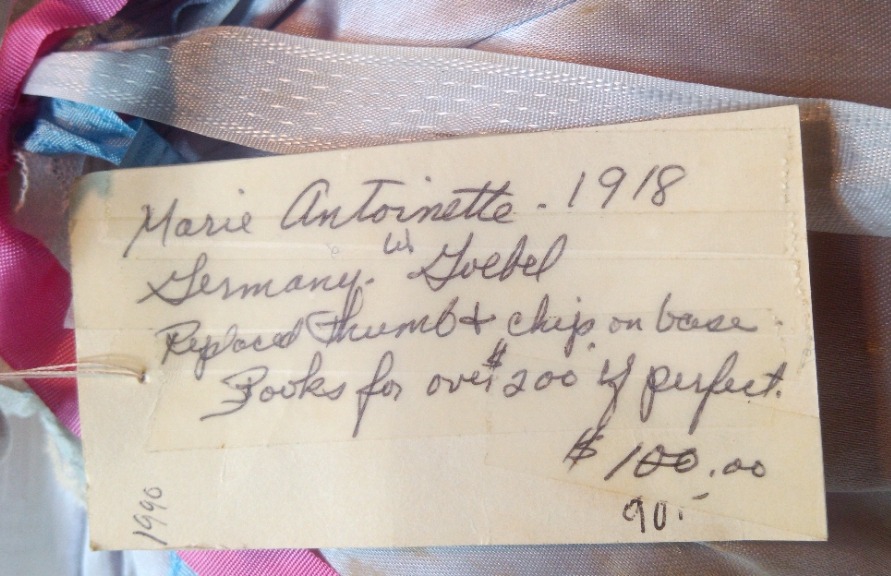 Marie Antoinette - 1918
Germany. W Goebel
Replaced thumb & chip on base.
Books for over $200 if perfect.
$100.00
90.-
1990